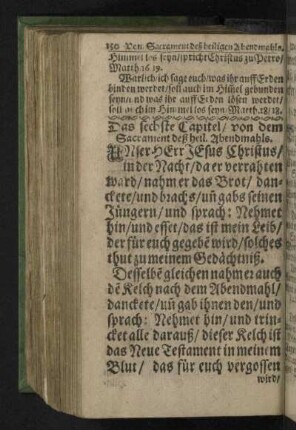 150 Ven. Sacrament deß heiligen Abendmahls.
Himmel los seyn/spricht Christus zu Petro/
Matth. 16. 19.
Warlich ich sage euch/was ihr auff Erden
binden werdet/soll auch im Himel gebunden
seyn/und was ihr auff Erden lösen werdet/
soll auch im Himmel los seyn. Matth. 18/18.
Das sechste Capitel/ von dem
Sacrament deß heil. Abendmahls.
UNser HErr JEsus Christus/
in der Nacht/da er verrahten
ward/nahm er das Brot/ dan-
ckete/und brachs/uñ gabs seinen
Jüngern/und sprach: Nehmet
hin/und esset/das ist mein Leib/
der für euch gegebē wird/solches
thut zu meinem Gedächtniß.
Desselbē gleichen nahm er auch
dē Kelch nach dem Abendmahl/
danckete/uñ gab ihnen den/und
sprach: Nehmet hin/und trin-
cket alle darauß/dieser Kelch ist
das Neue Testament in meinem
Blut/ das für euch vergossen
wird/